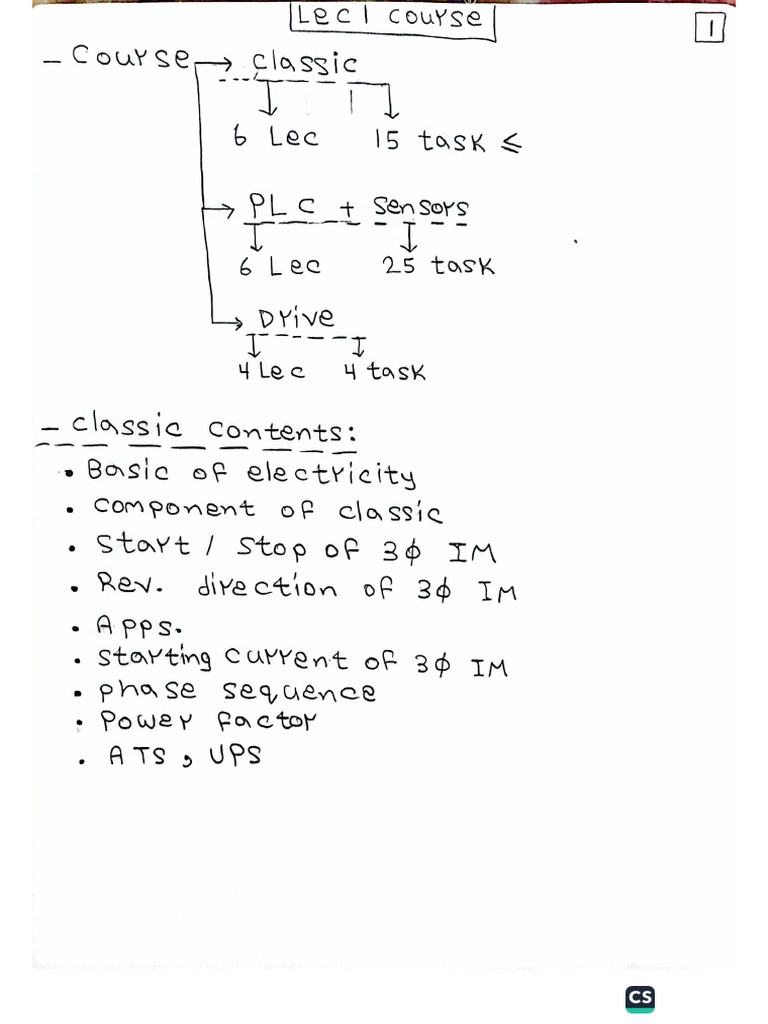 Lec 1 course
1
- Course → classic
6 Lec 15 task ≤
→ PLC + Sensors
6 Lec 25 task
→ Drive
4 Lec 4 task
- classic contents:
• Basic of electricity
• component of classic
• Start / Stop of 3ϕ IM
• Rev. direction of 3ϕ IM
• Apps.
• starting current of 3ϕ IM
• phase sequence
• Power factor
• ATS, UPS
CS